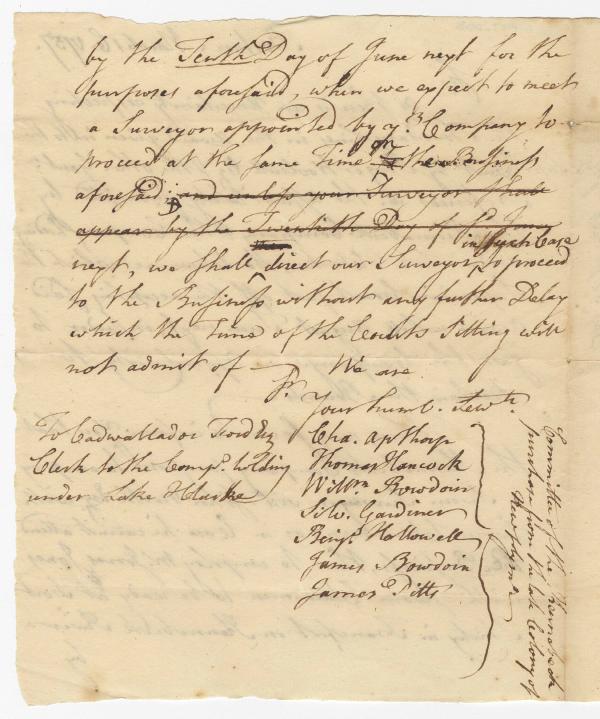 by the Tenth Day of June next for the
purposes aforesaid, when we expect to meet
a Surveyor appointed by yr. Company to
proceed at the same Time on the Business
aforesaid; and unless your Surveyor shall
appear by the Twentieth Day of sd. June
in such Case
next, we shall direct our Surveyor to proceed
to the Business without any further Delay
which the Time of the Courts Sitting will
not admit of We are
Sr.
Your humb. Servts.
To Cadwallador Ford Esq
Clerk to the Compa. holding
under Lake & Clarke
Cha. Apthorp
Thomas Hancock
Willm. Bowdoin
Silv. Gardiner
Benja. Hallowell
James Bowdoin
James Pitts
Committee of the Kennebeck
purchase from the late Colony of
New plymo